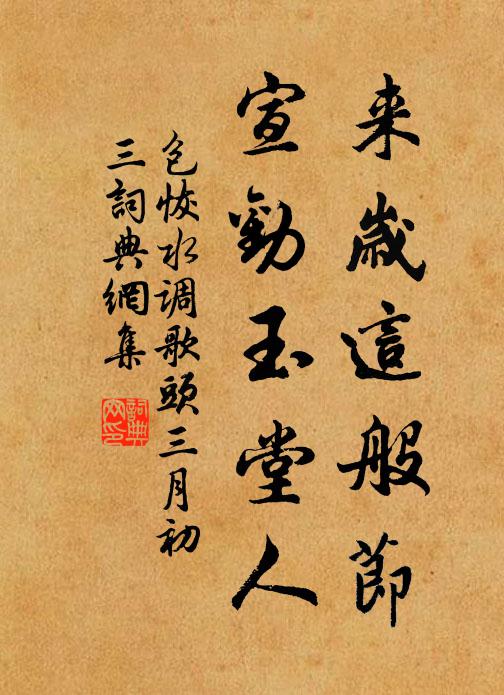 来歲這般節
宣勸玉堂人
包恢水调歌頭三月初
三詞典網集
詞典网印